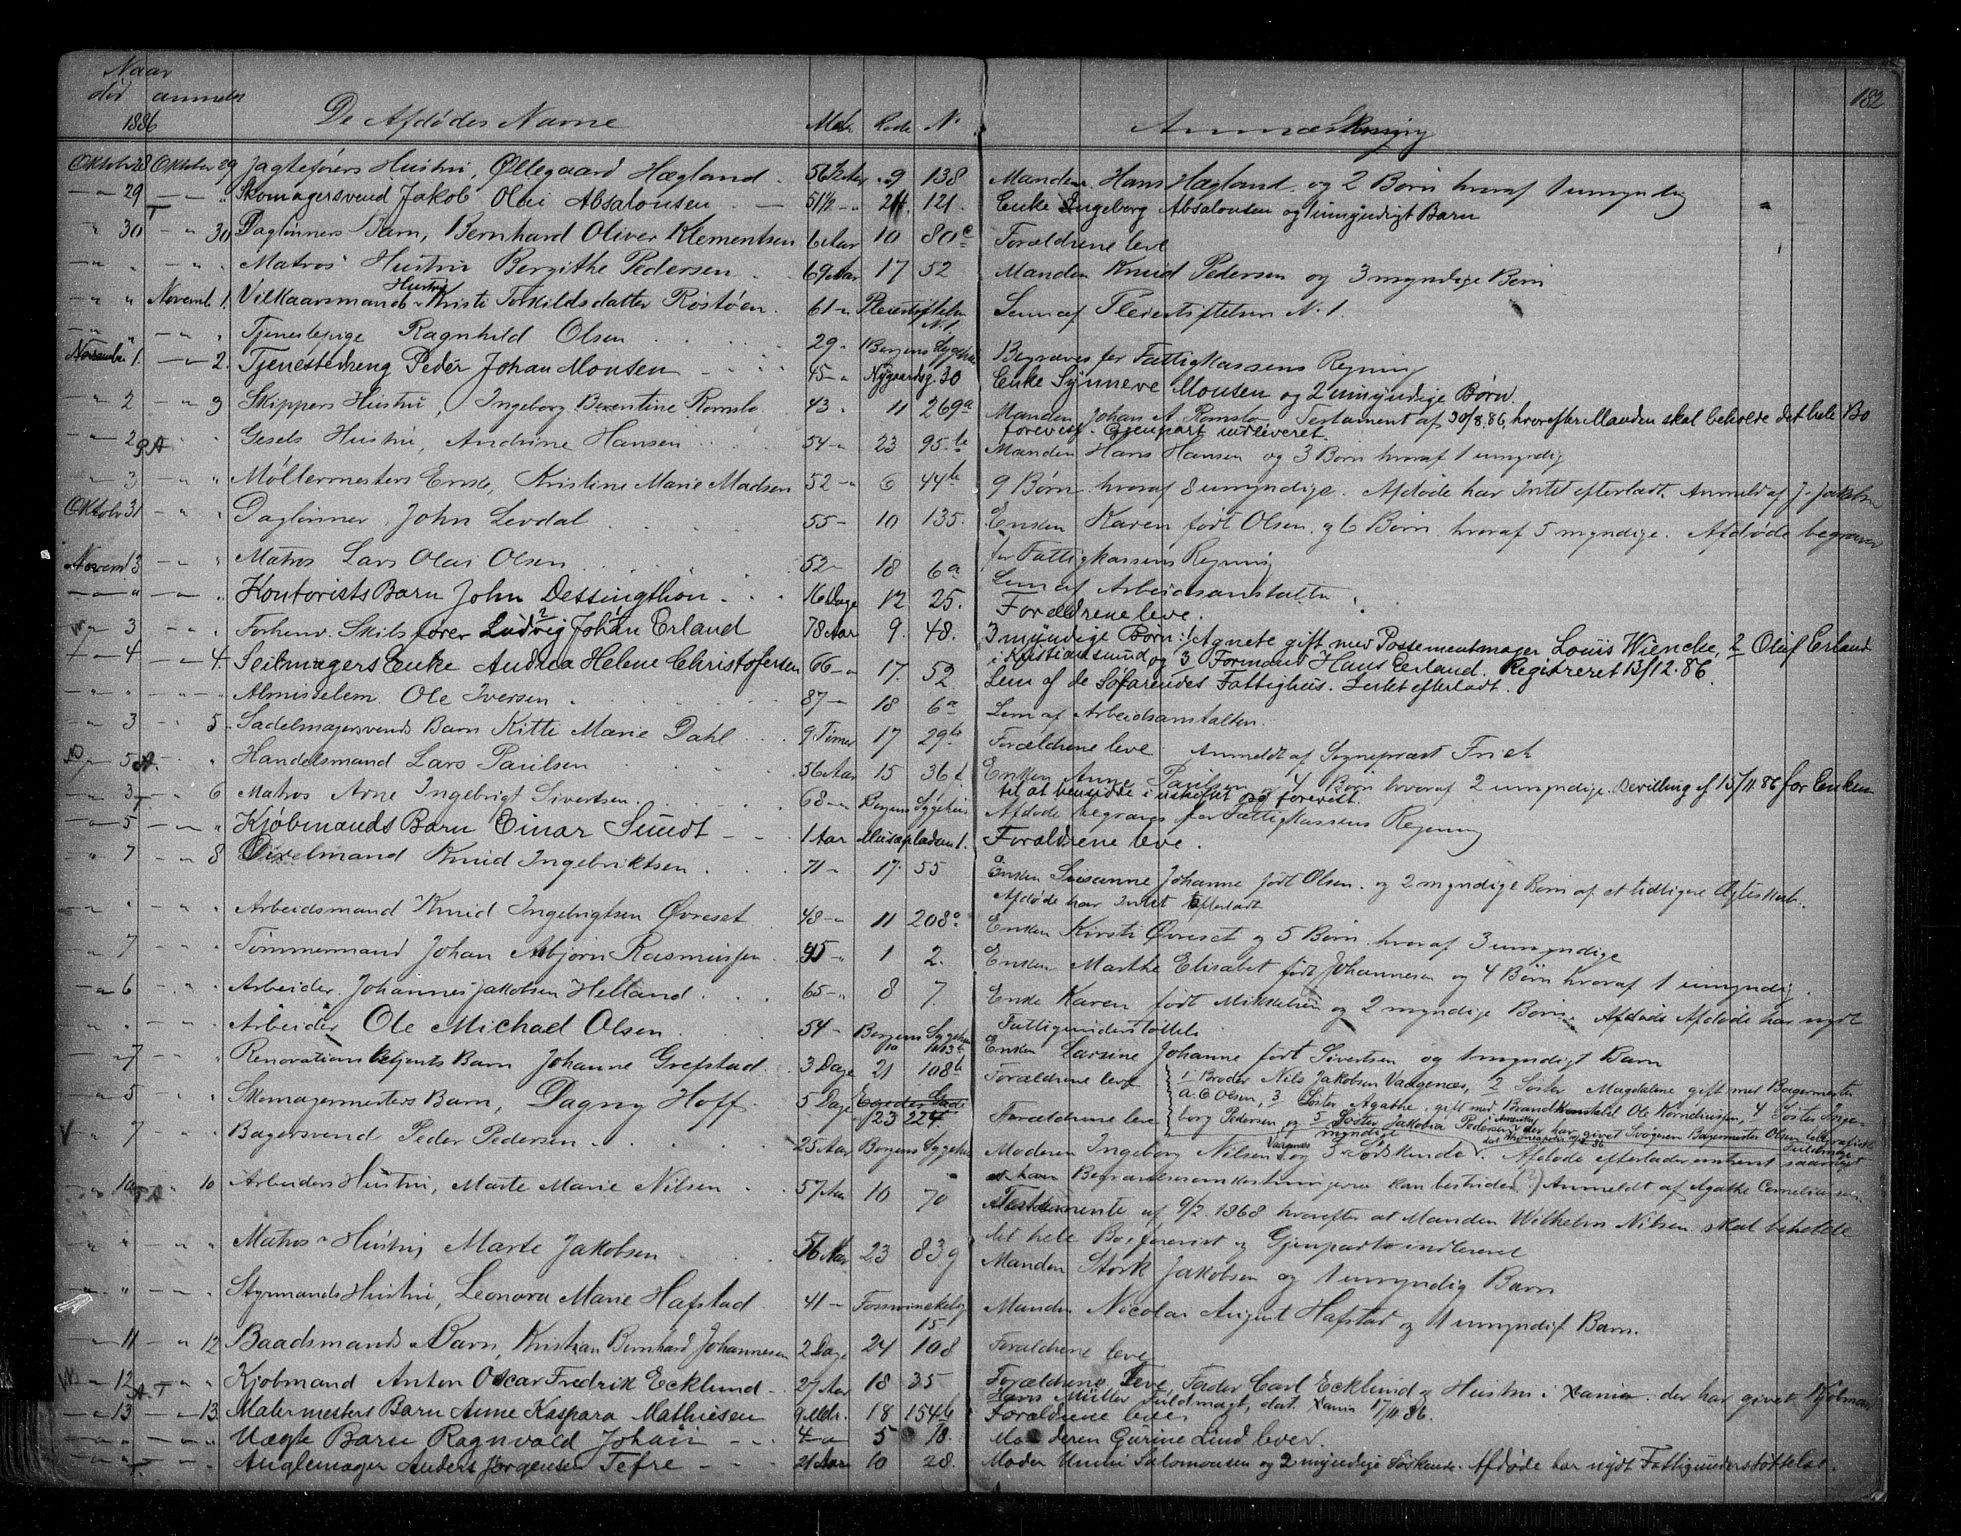 Naar
død anmeldt
1886 De Afdødes Navne Alder Rode N. Anmærkning 182
Oktober 28 Oktober 29 Jagteførers Hustru, Øllegaard Hægland 56 Aar 9 138 Manden Hans Hægland og 2 Børn hvoraf 1 umyndig
29 Skomagersvend Jakob Olai Absalonsen 51½ 24 121 Enke Ingeborg Absalonsen og 1 umyndigt Barn
30 30 Dagløners Barn, Bernhard Oliver Klementsen 6 Aar 10 80c Forældrene leve
Matros Hustru Bergithe Pedersen 69 Aar 17 52 Manden Knud Pedersen og 3 myndige Børn
Novemb 1. Vilkaarsmands Hustru Kristi Torkildsdatter Røstøen 61 Pleiestiftelsen N.1 Lem af Pleiestiftelsen N. 1.
Tjenestepige Ragnhild Olsen 29 Bergens Sygehus Begraves for Fattigkassens Regning
November 1. 2. Tjenestedreng Peder Johan Monsen 45 Nygaardsg. 30 Enke Synneve Monsen og 2 umyndige Børn.
2 3 Skippers Hustru, Ingeborg Berentine Romslo 43 11 269a Manden Johan A. Romslo. Testament af 30/8.86, hvorefter Manden skal beholde det hele Bo
forevist. Gjenpart indleveret.
2 Gesels Hustru, Andrine Hansen 54 23 95b Manden Hans Hansen og 3 Børn hvoraf 1 umyndig
3 Møllermesters Enke, Kristine Marie Madsen 52 6 44b 9 Børn hvoraf 8 umyndige. Afdøde har Intet efterladt. Anmeld af J. Jakobsen
Oktober 31 Dagløner John Levdal 55 10 135. Enken Karen født Olsen og 6 Børn hvoraf 5 myndige. Afdøde begraves
for Fattigkassens Regning
Novem 3 Matros Lars Olai Olsen 52 18 6a Lem af Arbeidsanstalten
Kontorists Barn John Dessingthon 16 Dage 12 25. Forældrene leve.
3 Forhenv. Skibsfører Ludvig Johan Erland 78 Aar 9. 48. 3 myndige Børn: 1 Agnete gift med Possementmager Louis Wiencke, 2 Oluf Erland
i Kristiansund og 3 Formand Hans Erland. Registreret 13/12.86.
4 4. Seilmagers Enke Andrea Helene Christofersen 66 17. 52 Lem af de Søfarendes Fattighus. Intet efterladt.
Almisselem Ole Iversen 87 18 6a Lem af Arbeidsanstalten.
3 5 Sadelmagersvends Barn Kitti Marie Dahl 9 Timer 17 29b Forældrene leve Anmeldt af Sognepræst Frich
5 Handelsmand Lars Paulsen 56 Aar 15 36 Enken Anne Paulsen 4 Børn hvoraf 2 umyndige. Bevilling af 15/11 86 for Enken
til at hensidde i uskiftet Bo forevist.
3 6 Matros Arne Ingebrigt Sivertsen 68 Bergens Sygehus Afdøde begraves for Fattigkassens Regning
5 Kjøbmands Barn Einar Sundt 1 Aar Musæpladsen 1. Forældrene leve.
7 8 Knud Ingebriktsen 71 17. 55 Enken Susanne Johanne født Olsen og 2 myndige Børn af et tidligere Ægteskab.
Afdøde har Intet efterladt
Arbeidsmand Knud Ingebrigtsen Øvreset 48 11 208a Enken Kirsti Øvreset og 5 Børn hvoraf 3 umyndige
7 Tømmermand Johan Asbjørn Rasmussen 45 1 2. Enken Marthe Elisabet født Johannesen og 4 Børn hvoraf 1 umyndig.
6 Arbeider Johannes Jakobsen Helland 65 8 7. Enke Karen født Mikkelsen og 2 myndige Børn. Afdøde har nydt
Fattigunderstøttelse
Arbeider Ole Michael Olsen 54 Bergens Sygehus Enken Larsine Johanne født Sivertsen og 1 myndigt Barn
7 Renovations betjents Barn Johanne Grefstad 3 Dage 21 108b Forældrene leve
1 Broder Nils Jakobsen Vaagenæs, 2 Søster Magdalene gift med Bagermester
A. C. Olsen, 3 Søster Agathe gift med Brandkonstabel Ole Korneliussen, 4 Søster Inge-
borg Pedersen, og 5 Søster Jakobia Pedersen der har givet Svogeren Bagermester Olsen
5 Skomagermesters Barn, Dagny Hoff 5 Dage 23 224 Forældrene leve
7 Bagersvend Peder Pedersen 25 Aar Bergens Sygehus Moderen Ingeborg Nilsen og 3 myndige Sødskende. Afdøde efterlader
Begravelsesomkostningerne kan bestrides. Anmeldt af Agathe Corneliussen
10 10 Arbeiders Hustru, Marte Marie Nilsen 57 Aar 10 70 Testamente af 9/2. 1868 hvorefter at Manden Wilhelm Nilsen skal beholde
det hele Bo, forevist og Gjenpart indleveret
Matros Hustru Marte Jakobsen 56 Aar 23 83 g Manden Stork Jakobsen og 1 umyndig Barn
Styrmands Hustru, Leonora Marie Hafstad 41 Fosswinckelsg 15 Manden Nicolai August Hafstad og 1 umyndig Barn.
11 12 Baadsmands Barn, Kristian Bernhard Johannesen 2 Dage 24 108 Forældrene leve
12 Kjøbmand Anton Oscar Fredrik Ecklund 27 Aar 18 35 Forældrene leve, Fader Carl Ecklund og Hustru i Xania der har givet Kjøbmand
Hans Müller Fuldmagt, dat. Xania 17/11 86.
13 13. Malermesters Barn Anne Kaspara Mathiesen 9 Mdr. 18 154b Forældrene leve
Uægte Barn Ragnvald Johan 4 5 18. Moderen Gurine Lind lever.
Anglemager Anders Jørgensen Tefre 21 Aar 10 28. Moder Unni Salomonsen og 2 myndige Søskende. Afdøde har nydt Fattigunderstøttelse.